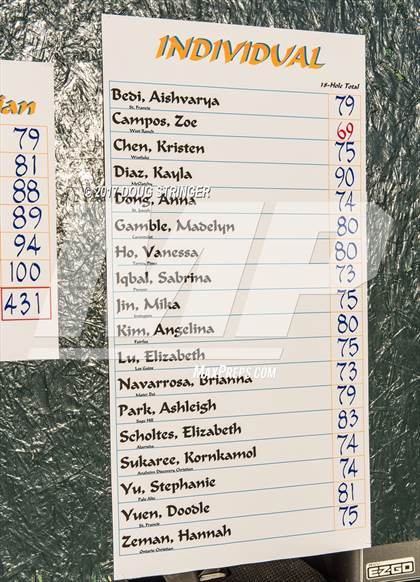 INDIVIDUAL
18-Hole Total
Bedi, Aishvarya 79
St. Francis
Campos, Zoe 69
West Ranch
Chen, Kristen 75
Westlake
Diaz, Kayla 90
© 2017 DOUG STRINGER
Dong, Anna 74
Gamble, Madelyn 80
Ho, Vanessa 80
Iqbal, Sabrina 73
Pioneer
Jin, Mika 75
Irvington
Kim, Angelina 80
Fairfax
Lu, Elizabeth 75
Los Gatos
MAXPREPS.COM
Navarrosa, Brianna 73
Mater Dei
Park, Ashleigh 79
Sage Hill
Scholtes, Elizabeth 83
Sukaree, Kornkamol 74
Anaheim Discovery Christian
Yu, Stephanie 74
Palo Alto
Yuen, Doodle 81
St. Francis
Zeman, Hannah 75
Ontario Christian
ian
79
81
88
89
94
100
431
MP
E-Z-GO